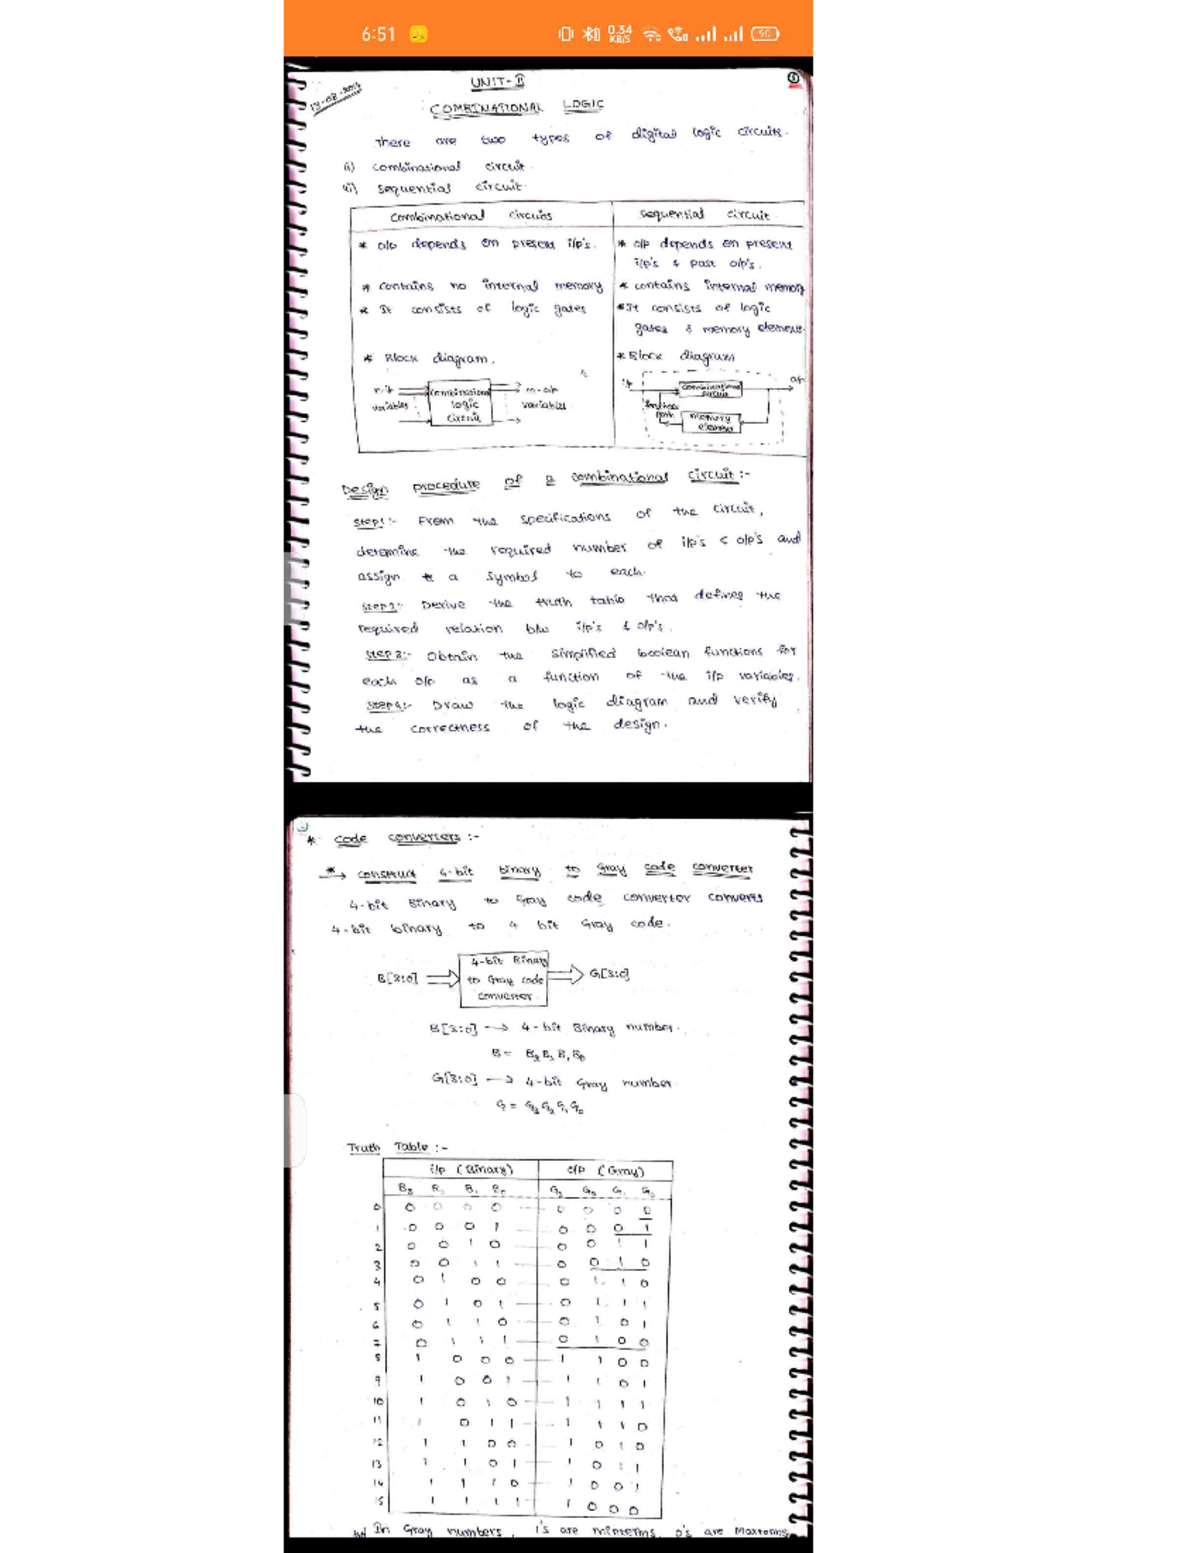 6:51
0.34
KB/S
90
13-08-2013
UNIT-II
COMBINATIONAL LOGIC
There are two types of digital logic circuits.
(i) combinasional circuit.
(ii) sequential circuit.
Combinational circuits
sequential circuit
* o/p depends on present i/p's.
* o/p depends on present
i/p's & past o/p's.
* contains no internal memory
* contains internal memory
* It consists of logic gates
* It consists of logic
gates & memory elements.
* Block diagram.
* Block diagram
n-i/p
variables
combinational
logic
circuit
m-o/p
variables
i/p
combinational
circuit
o/p
path
memory
element
Design procedure of a combinational circuit :-
Step1:- From the specifications of the circuit,
determine the required number of i/p's & o/p's and
assign a symbol to each.
Step2:- Derive the truth table that defines the
required relation b/w i/p's & o/p's.
Step 3:- Obtain the simplified boolean functions for
each o/p as a function of the i/p variables.
Step4:- Draw the logic diagram and verify
the correctness of the design.
* Code converters :-
* construct 4-bit binary to Gray code converter
4-bit Binary to Gray code convertor converts
4-bit binary to 4 bit Gray code.
B[3:0]
4-bit Binary
to Gray code
converter
G[3:0]
B[3:0] → 4-bit Binary number.
B = B3 B2 B1 B0
G[3:0] → 4-bit Gray number
G = G3 G2 G1 G0
Truth Table :-
i/p (Binary) o/p (Gray)
B3 B2 B1 B0 G3 G2 G1 G0
0 0 0 0 0 0 0 0 0
1 0 0 0 1 0 0 0 1
2 0 0 1 0 0 0 1 1
3 0 0 1 1 0 0 1 0
4 0 1 0 0 0 1 1 0
5 0 1 0 1 0 1 1 1
6 0 1 1 0 0 1 0 1
7 0 1 1 1 0 1 0 0
8 1 0 0 0 1 1 0 0
9 1 0 0 1 1 1 0 1
10 1 0 1 0 1 1 1 1
11 1 0 1 1 1 1 1 0
12 1 1 0 0 1 0 1 0
13 1 1 0 1 1 0 1 1
14 1 1 1 0 1 0 0 1
15 1 1 1 1 1 0 0 0
In Gray numbers, 1's are minterms, 0's are Maxterms